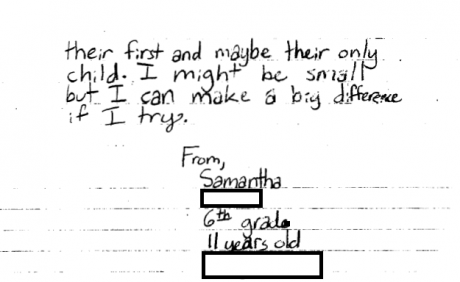 their first and maybe their only
child. I might be small
but I can make a big difference
if I try.
From,
Samantha
6th grade
11 years old